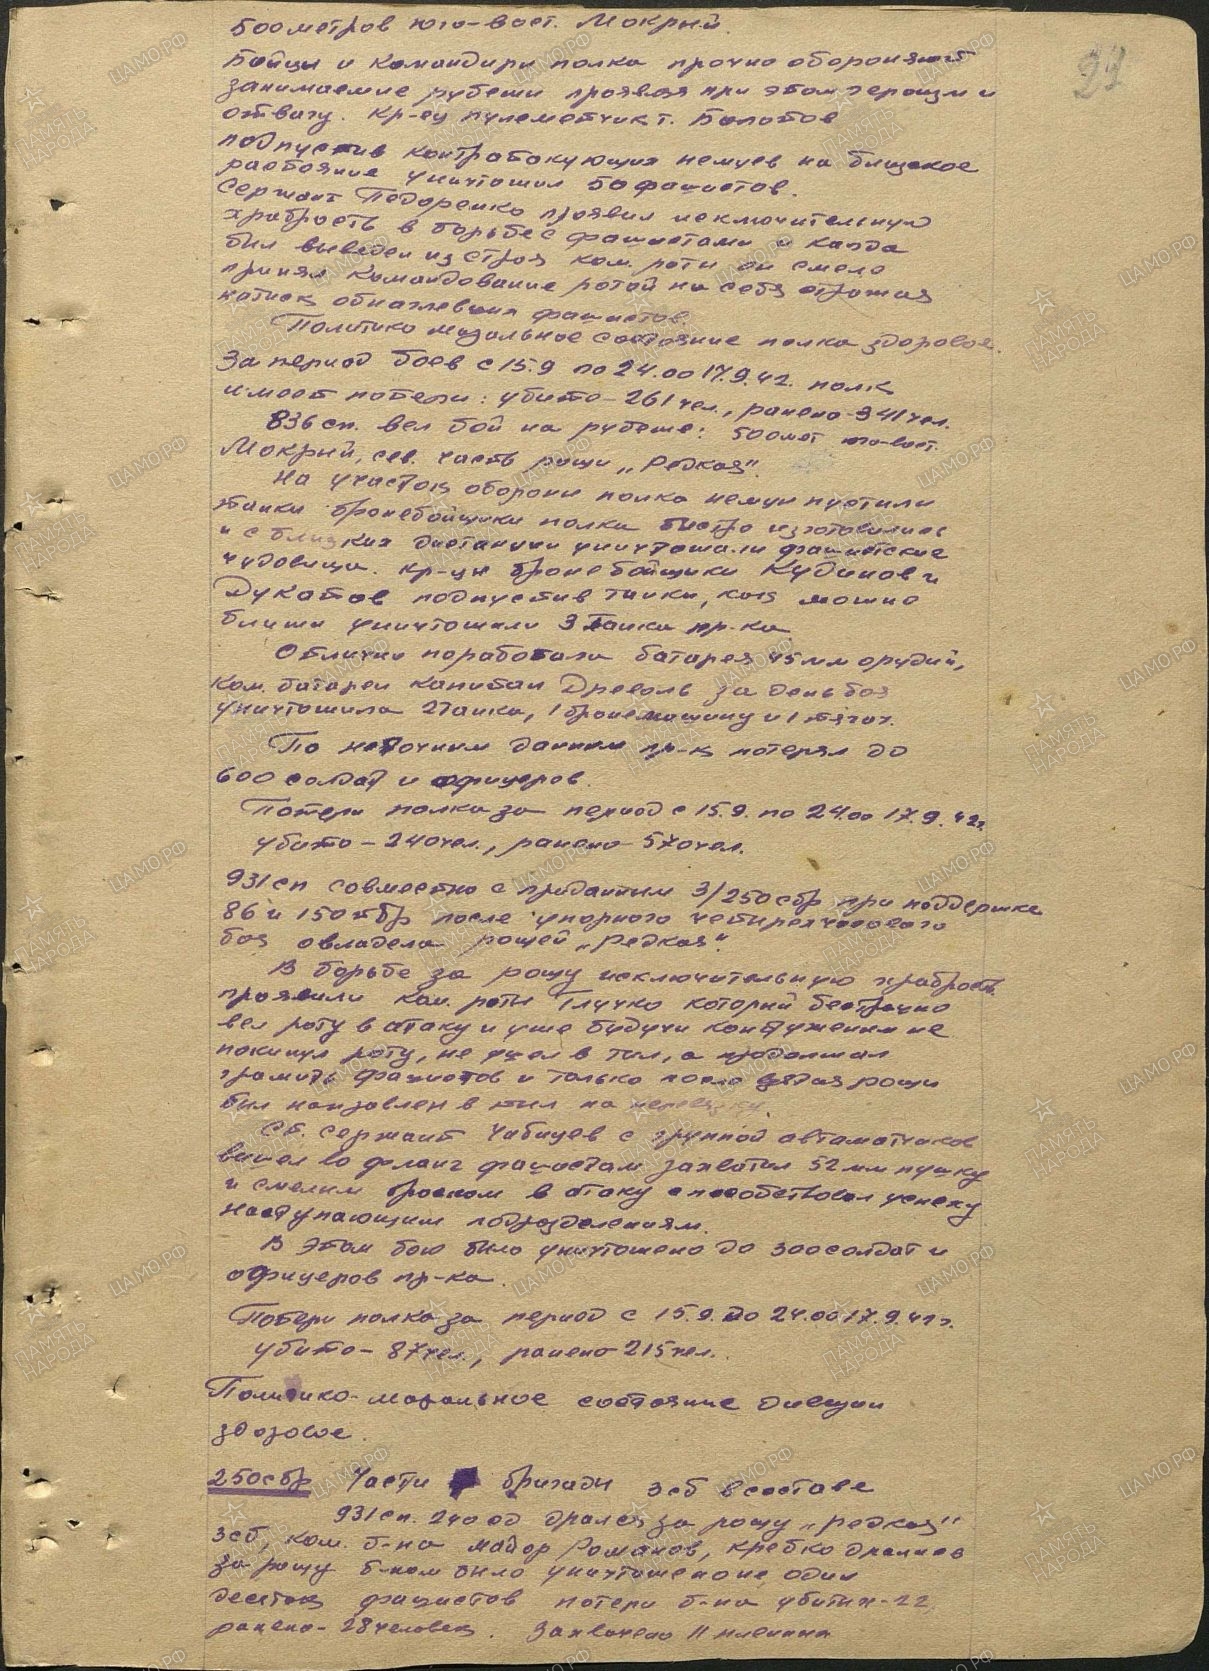 27
500 метров юго-вост. Мокрый.
Бойцы и командиры полка прочно обороняют
занимаемые рубежи проявляя при этом героизм и
отвагу. Кр-ец пулеметчик т. Болотов
подпустив контратакующих немцев на близкое
растояние уничтожил 50 фашистов.
Сержант Педоренко проявил исключительную
храбрость в борьбе с фашистами и когда
был выведен из строя ком. роты он смело
принял командование ротой на себя отражая
натиск обнаглевших фашистов.
Политико моральное состояние полка здоровое.
За период боев с 15.9 по 24.00 17.9.42. полк
имеет потери: убито - 261 чел., ранено - 341 чел.
836 сп. вел бой на рубеже: 500 мет юго-вост.
Мокрый, сев. часть рощи „Редкая".
На участок обороны полка немцы пустили
танки бронебойщики полка быстро изготовились
и с близких дистанций уничтожали фашистские
чудовища. Кр-цы бронебойщики Кудинов и
Дукатов подпустив танки, как можно
ближе уничтожили 3 танка пр-ка.
Отлично поработала батарея 45 мм орудий,
ком. батареи капитан Древоль за день боя
уничтожила 2 танка, 1 бронемашину и 1 тягач.
По неточным данным пр-к потерял до
600 солдат и офицеров.
Потери полка за период с 15.9. по 24.00 17.9.42г.
убито - 240 чел., ранено - 570 чел.
931 сп совместно с приданным 3/250 сбр при поддержке
86 и 150 тбр после упорного четырехчасового
боя овладела рощей „Редкая".
В борьбе за рощу исключительную храбрость
проявили ком. роты Глучко который бестрашно
вел роту в атаку и уже будучи контуженным не
покинул роту, не ушел в тыл, а продолжал
громить фашистов и только после взятия рощи
был направлен в тыл на перевязку.
Ст. сержант Чибицев с группой автоматчиков
вышел во фланг фашистам захватил 52 мм пушку
и смелым броском в атаку способствовал успеху
наступающим подразделениям.
В этом бою было уничтожено до 300 солдат и
офицеров пр-ка.
Потери полка за период с 15.9. до 24.00 17.9.42г.
убито - 87 чел., ранено - 215 чел.
Политико-моральное состояние дивизии
здоровое.
250 сбр Части бригады 3сб в составе
931 сп. 240 сд дрался за рощу „Редкая"
3сб, ком. б-на майор Романов, крепко дрались
за рощу б-ном было уничтожено не один
десяток фашистов потери б-на убитых - 22,
ранено - 28 человек. Захвачено 11 пленных